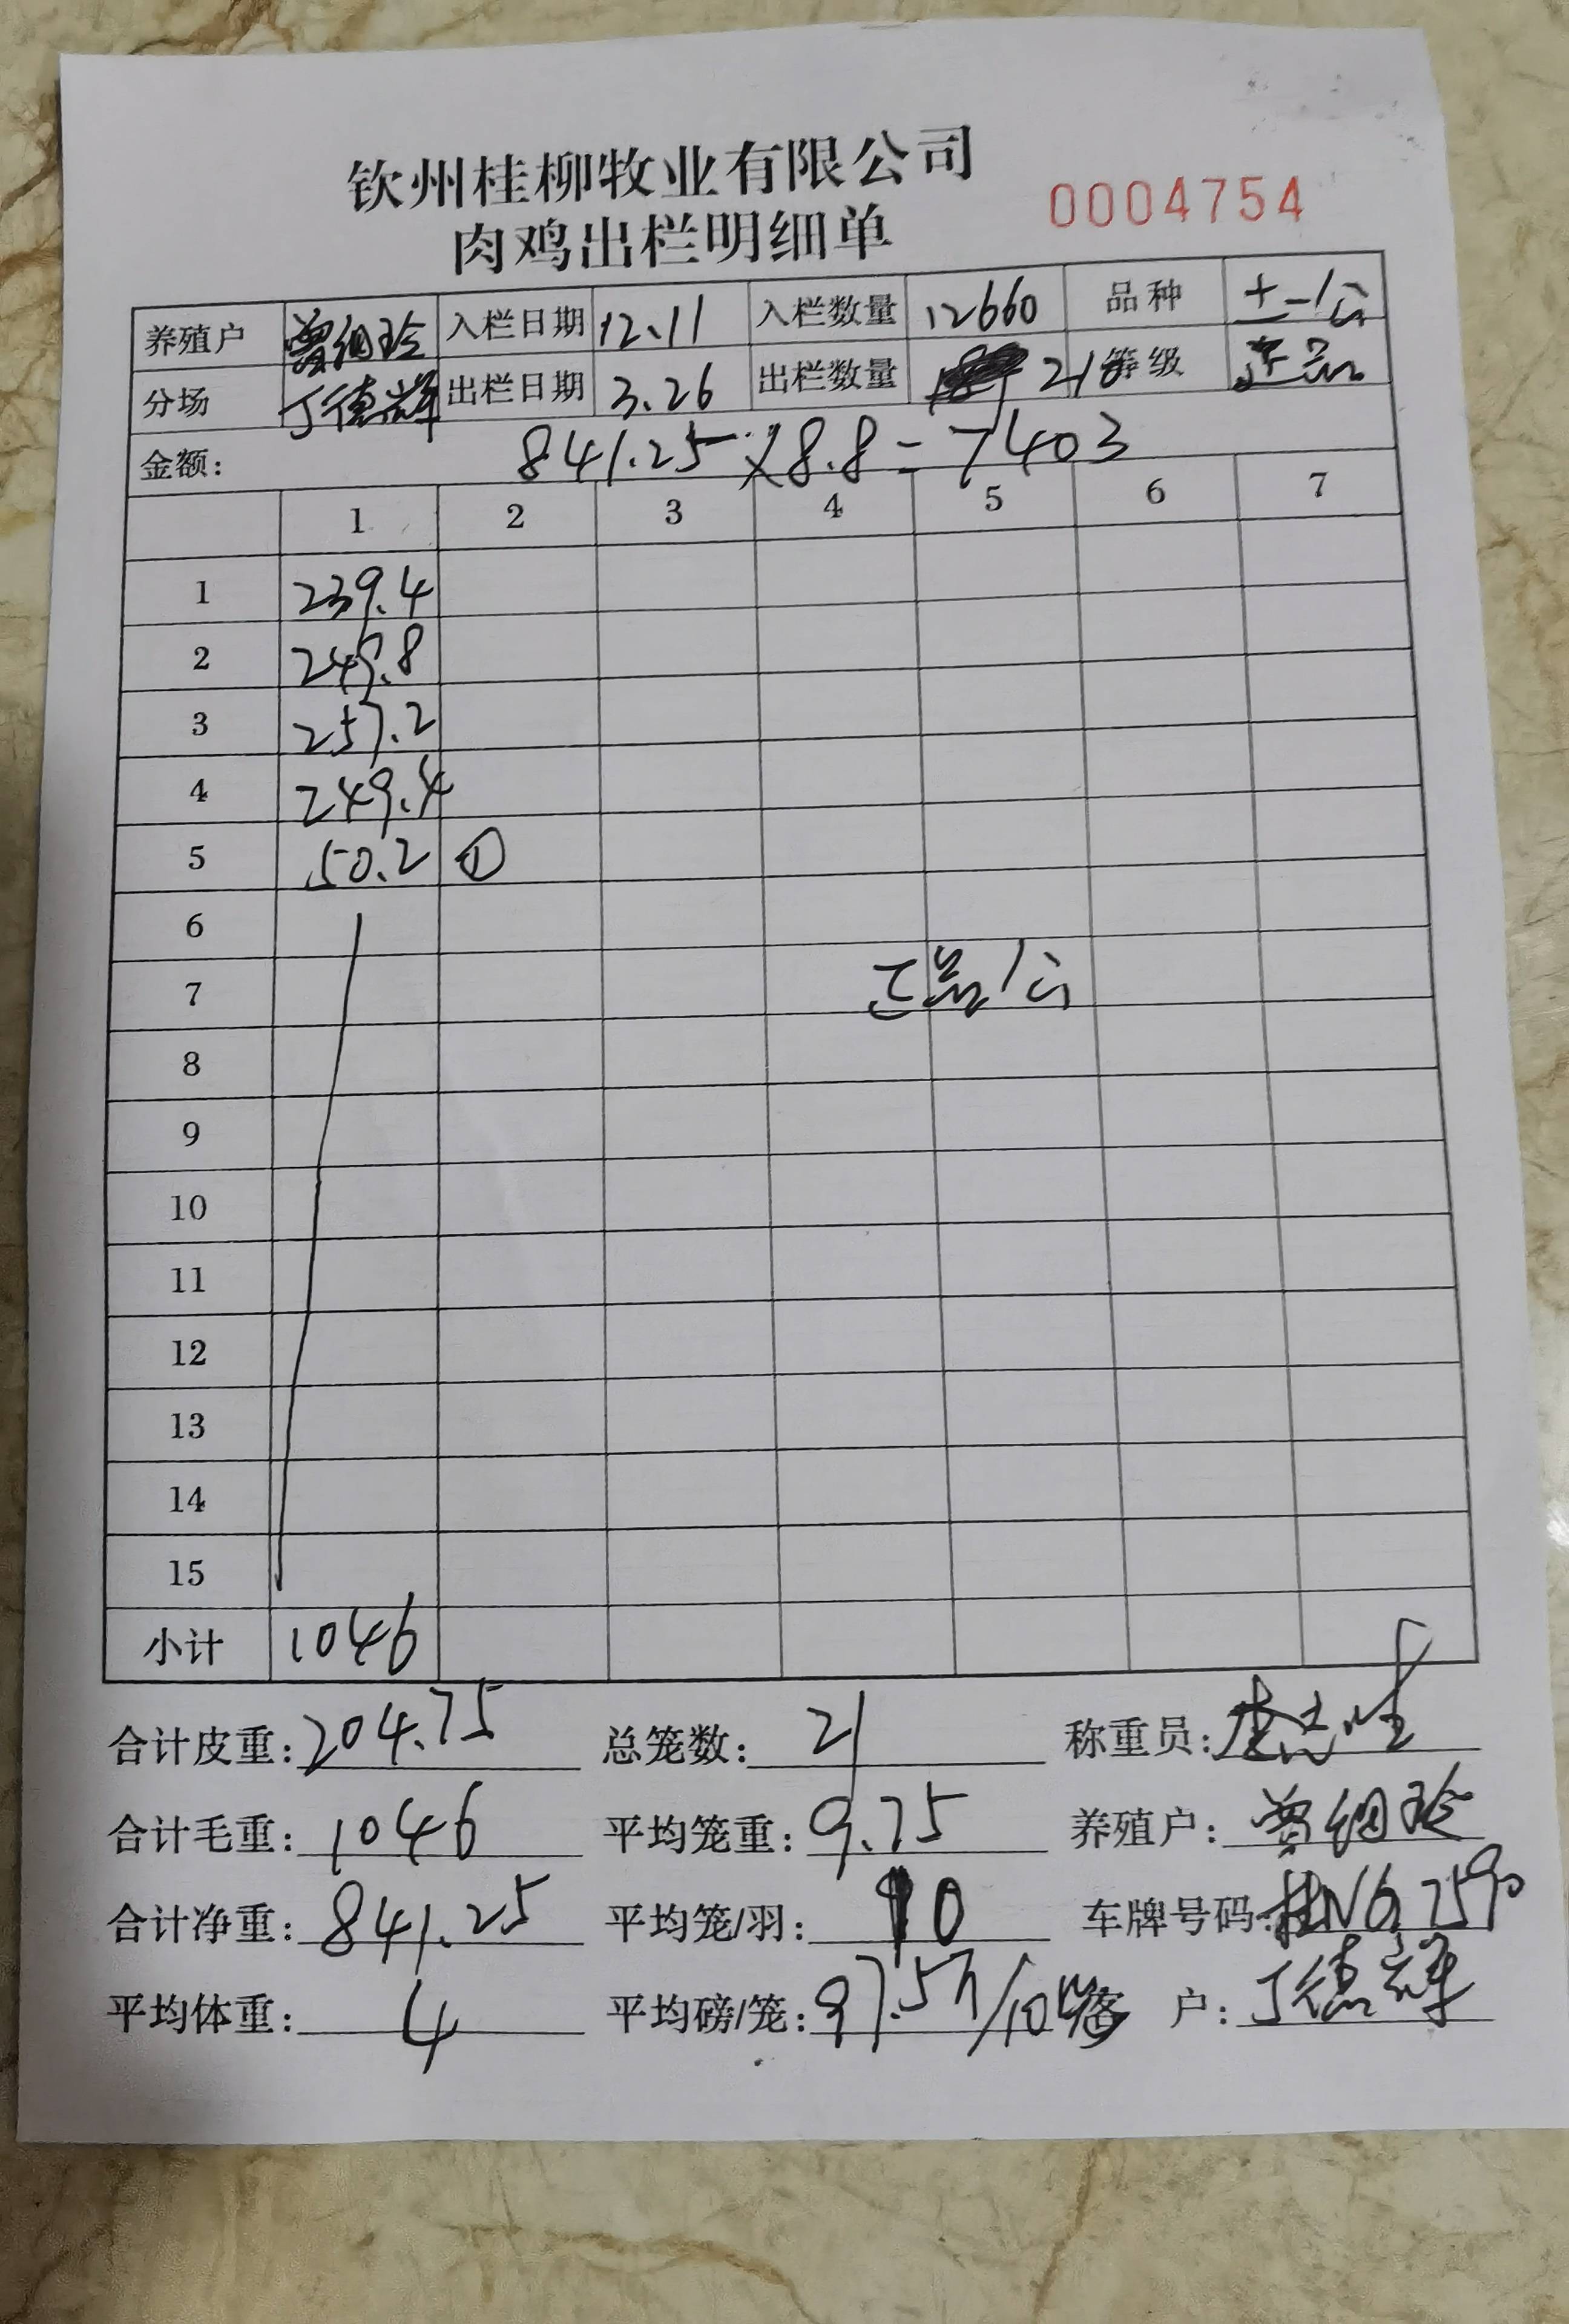 钦州桂柳牧业有限公司
肉鸡出栏明细单 0004754
养殖户 曾细玲 入栏日期 12.11 入栏数量 12660 品种 土一/公
分场 丁德辉 出栏日期 3.26 出栏数量 210 等级 正品
金额: 841.25×8.8=7403
1 2 3 4 5 6 7
1 239.4
2 249.8
3 257.2
4 249.4
5 50.2 ①
6
7 正品/公
8
9
10
11
12
13
14
15
小计 1046
合计皮重: 204.75 总笼数: 21 称重员:
合计毛重: 1046 平均笼重: 9.75 养殖户: 曾细玲
合计净重: 841.25 平均笼/羽: 10 车牌号码: 桂N67590
平均体重: 4 平均磅/笼: 97.5斤/10 客 户: 丁德辉